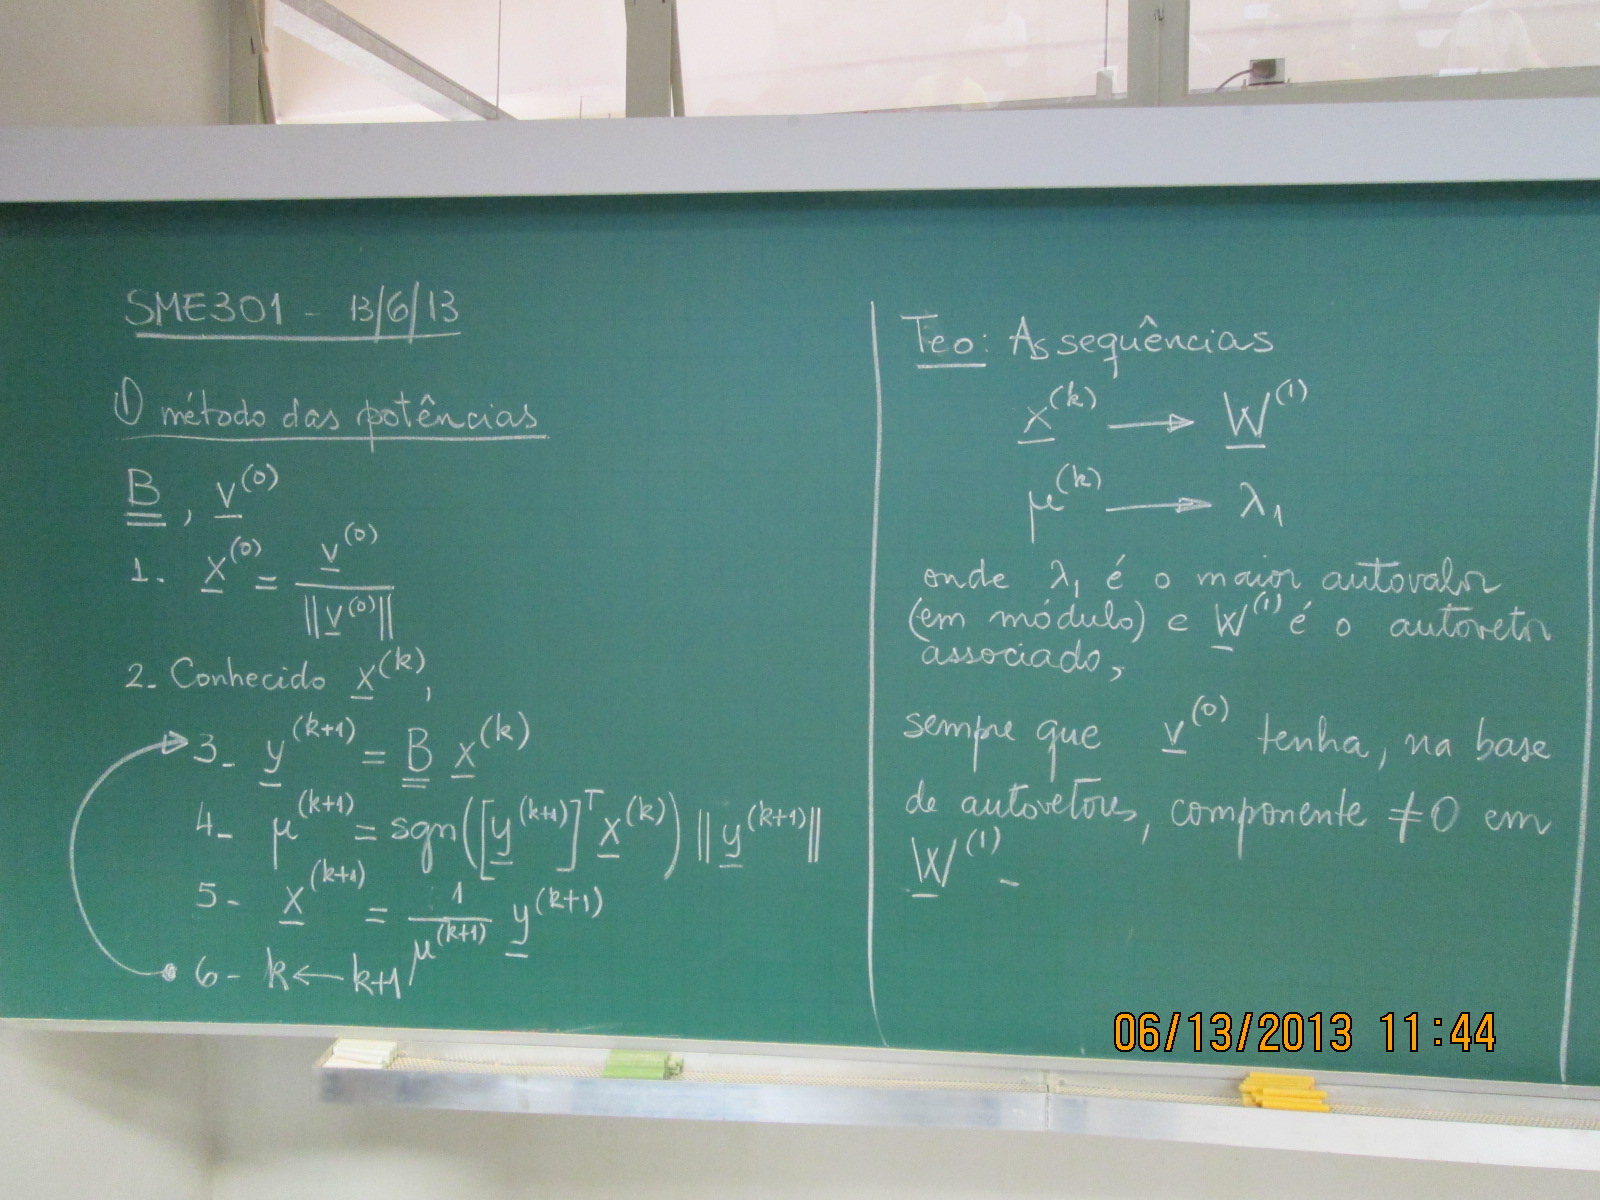 SME301 - 13/6/13
① método das potências
B, v^(0)
1. x^(0) = v^(0) / ||v^(0)||
2- Conhecido x^(k),
3- y^(k+1) = B x^(k)
4- μ^(k+1) = sgn([y^(k+1)]^T x^(k)) ||y^(k+1)||
5- x^(k+1) = 1/μ^(k+1) y^(k+1)
6- k ← k+1
Teo: As sequências
x^(k) → W^(1)
μ^(k) → λ₁
onde λ₁ é o maior autovalor
(em módulo) e W^(1) é o autovetor
associado,
sempre que v^(0) tenha, na base
de autovetores, componente ≠0 em
W^(1)-
06/13/2013 11:44